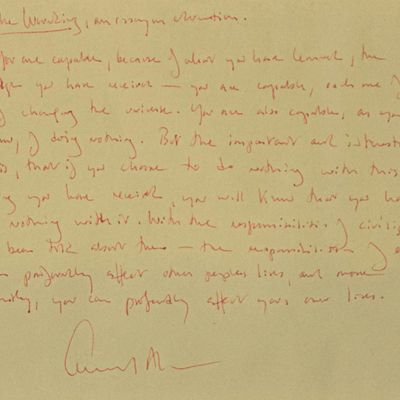 the Wording, an essay on education.
You are capable, because of what you have learned, the
you have received — you are capable, each one of
changing the universe. You are also capable, as you
, of doing nothing. But the important and interesting
is, that if you choose to do nothing with this
you have received, you will know that you have
nothing with it. With the responsibilities of
been told about them — the responsibilities of
profoundly affect other peoples lives, and more
, you can profoundly affect your own lives.